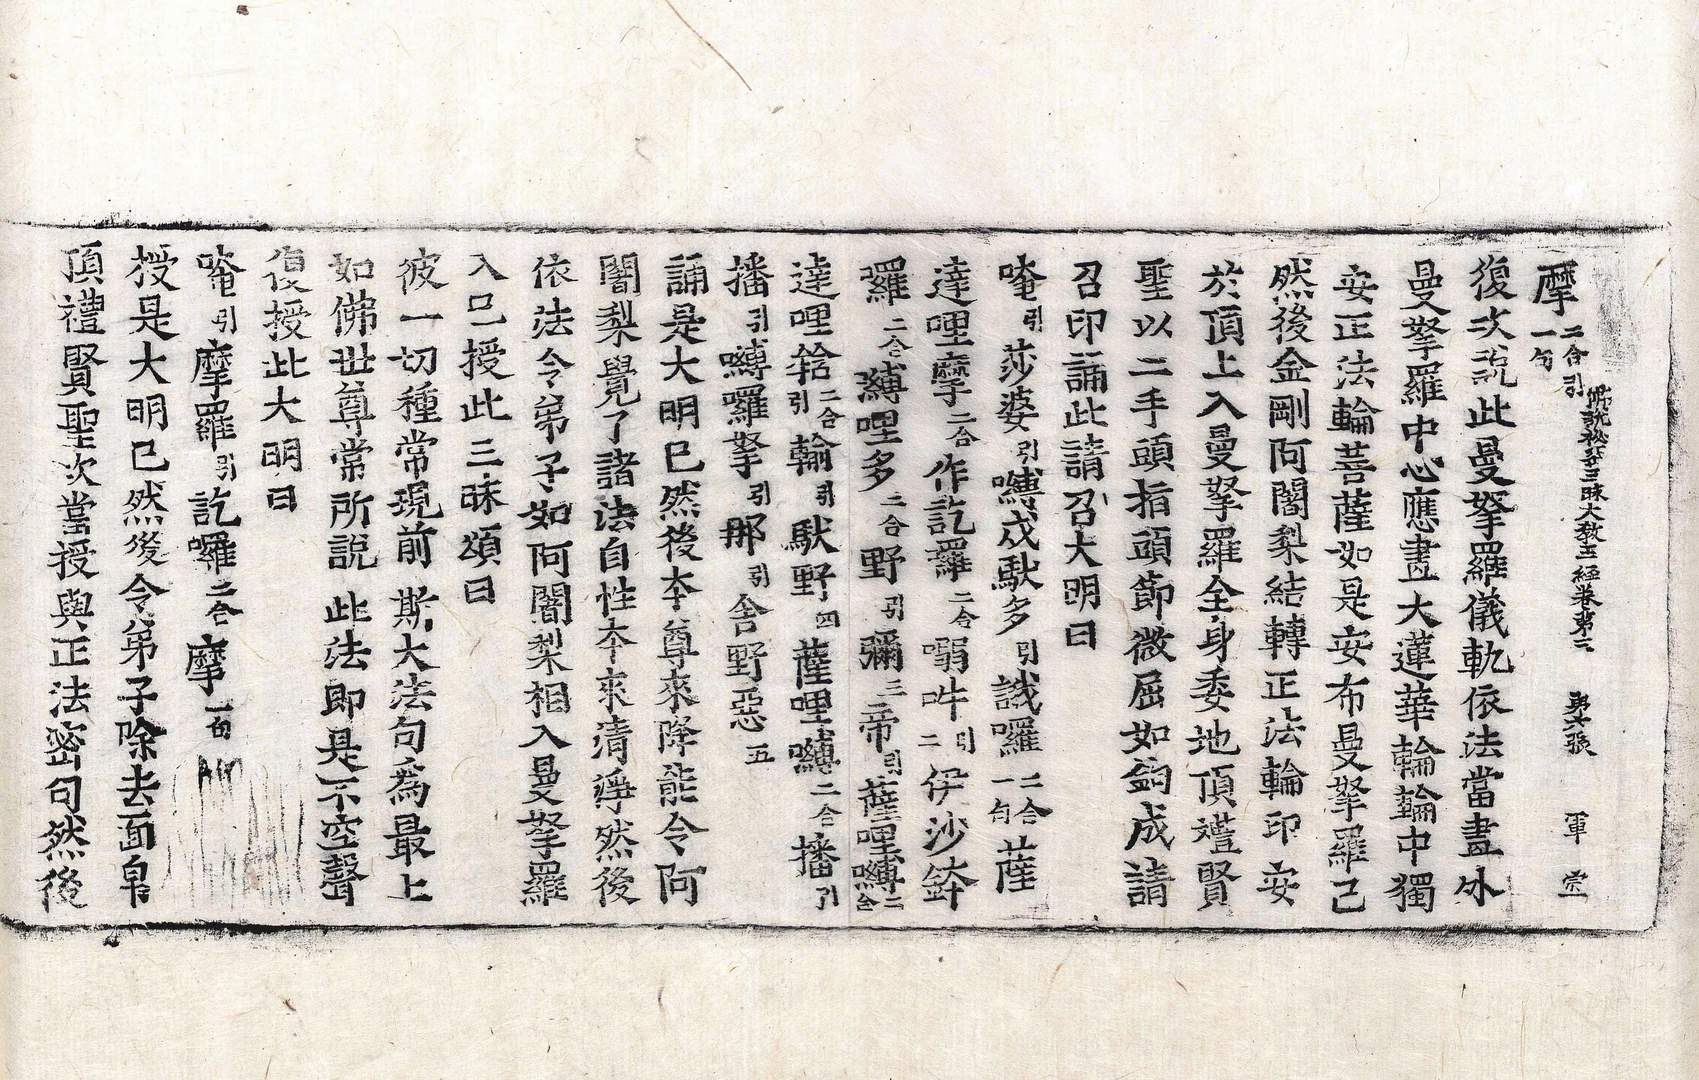 佛說秘密三昧大教王經卷第二 第十六張 軍 㝎
摩二合引一句
復次說此曼拏羅儀軌依法當畫外
曼拏羅中心應畫大蓮華輪輪中獨
安正法輪菩薩如是安布曼拏羅已
然後金剛阿闍梨結轉正法輪印安
於頂上入曼拏羅全身委地頂禮賢
聖以二手頭指頭節微屈如鉤成請
召印誦此請召大明曰
唵引莎婆引嚩戍馱多引誐囉二合一句薩
達哩摩二合作訖羅二合嚩吽引二伊沙鉢
羅二合嚩哩多二合野引彌三帝引薩哩嚩二合
達哩㗶二合引輸引馱野四薩哩嚩二合播引
播引嚩囉拏引那引舍野惡五
誦是大明已然後本尊來降能令阿
闍梨覺了諸法自性本來清淨然後
依法令弟子如阿闍梨相入曼拏羅
入已授此三昧頌曰
彼一切種常現前 斯大法句為最上
如佛世尊常所說 此法即是不空聲
復授此大明曰
唵引摩羅引訖囉二合摩一句
授是大明已然後令弟子除去面帛
頂禮賢聖次當授與正法密句然後